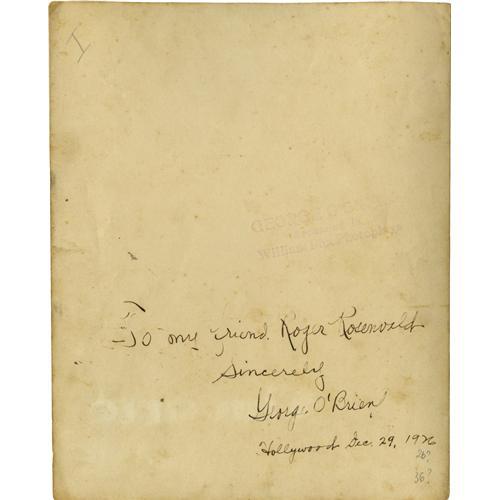 I
GEORGE O'BRIEN
William Fox Photoplays
To my friend Roger Rosenvald
Sincerely
George O'Brien
Hollywood Dec. 29, 1926
26?
36?